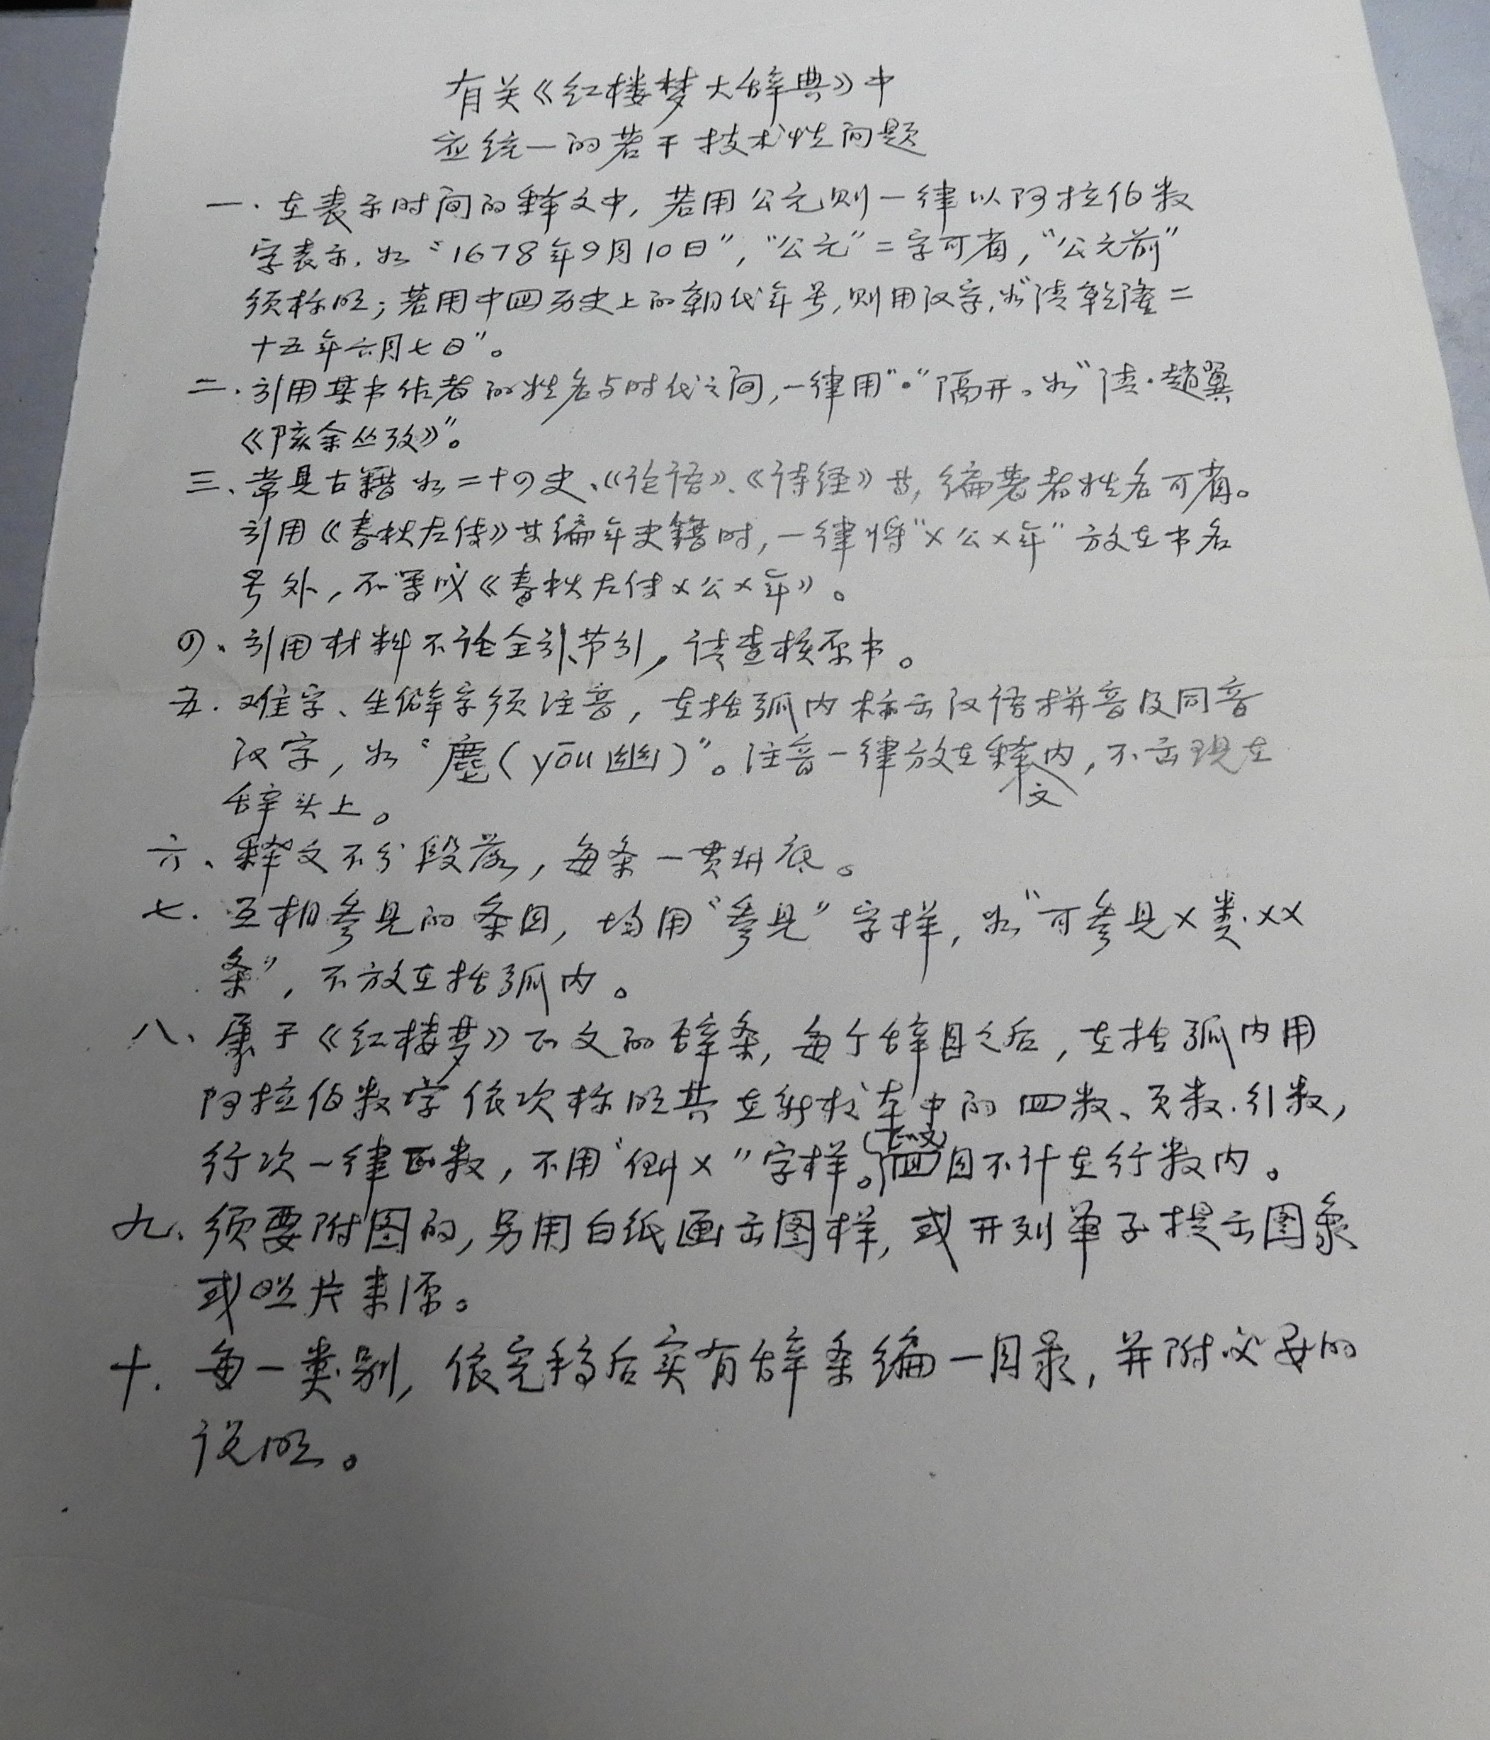 有关《红楼梦大辞典》中
应统一的若干技术性问题
一.在表示时间的释文中,若用公元则一律以阿拉伯数
字表示.如“1678年9月10日”,“公元”二字可省,“公元前”
须标明;若用中国历史上的朝代年号,则用汉字,如“清乾隆二
十五年六月七日”。
二.引用某书作者的姓名与时代之间,一律用“·”隔开。如“清·赵翼
《陔余丛考》”。
三、常见古籍如二十四史、《论语》、《诗经》等,编著者姓名可省。
引用《春秋左传》等编年史籍时,一律将“×公×年”放在书名
号外,不写成《春秋左传×公×年》。
四、引用材料不论全引、节引,请查核原书。
五.难字、生僻字须注音,在括弧内标出汉语拼音及同音
汉字,如“麀(yōu幽)”。注音一律放在释文内,不出现在
辞头上。
六、释文不分段落,每条一贯到底。
七.互相参见的条目,均用“参见”字样,如“可参见×类·××
条”,不放在括弧内。
八、属于《红楼梦》正文的辞条,每个辞目之后,在括弧内用
阿拉伯数字依次标明其在新校本中的回数、页数.行数,
行次一律正数,不用“倒×”字样。回目不计在行数内。
九、须要附图的,另用白纸画出图样,或开列单子提出图象
或照片来源。
十.每一类别,依完稿后实有辞条编一目录,并附必要的
说明。